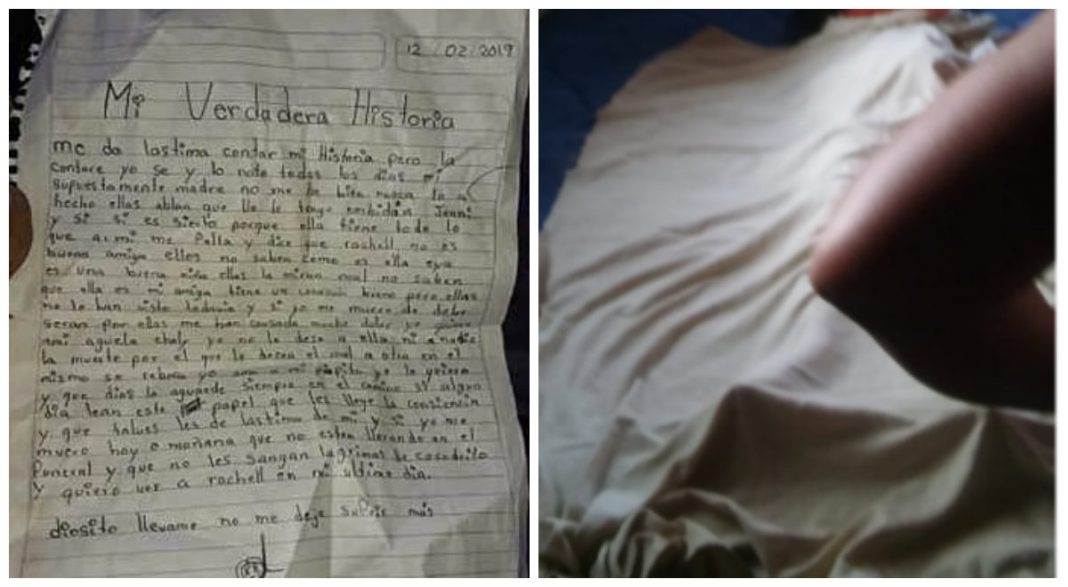 12 / 02 / 2019
Mi Verdadera Historia
me da lastima contar mi Historia pero la
contare yo se y lo noto todos los dias mi
supuestamente madre no me be bien nunca lo a
hecho ellas ablan que lle le tengo embidia a Jeani
y si si es sierto porque ella tiene todo lo
que a mi me falta y dice que rachell no es
buena amiga ellas no saben como es ella
es una buena niña ellas la miran mal no saben
que ella es mi amiga tiene un corazon bueno pero ellas
no lo han visto todavia y si yo me muero de deber
seran por ellas me han causado mucho dolor yo quiero
ami aguela yo no le deseo a ella ni a nadie
la muerte por el que le desea el mal a otra en el
mismo se rebosa yo amo a mi papito yo lo quiero
y que dios lo aguarde siempre en el camino si algun
dia lean este papel que les llege la consiencia
y que talves les de lastima de mi y si yo me
muero hoy o mañana que no esten llorando en el
funeral y que no les sangan lagrimas de cocodrilo
y quiero ver a rachell en mi ultimo dia.
diosito llevame no me deje sufrir mas